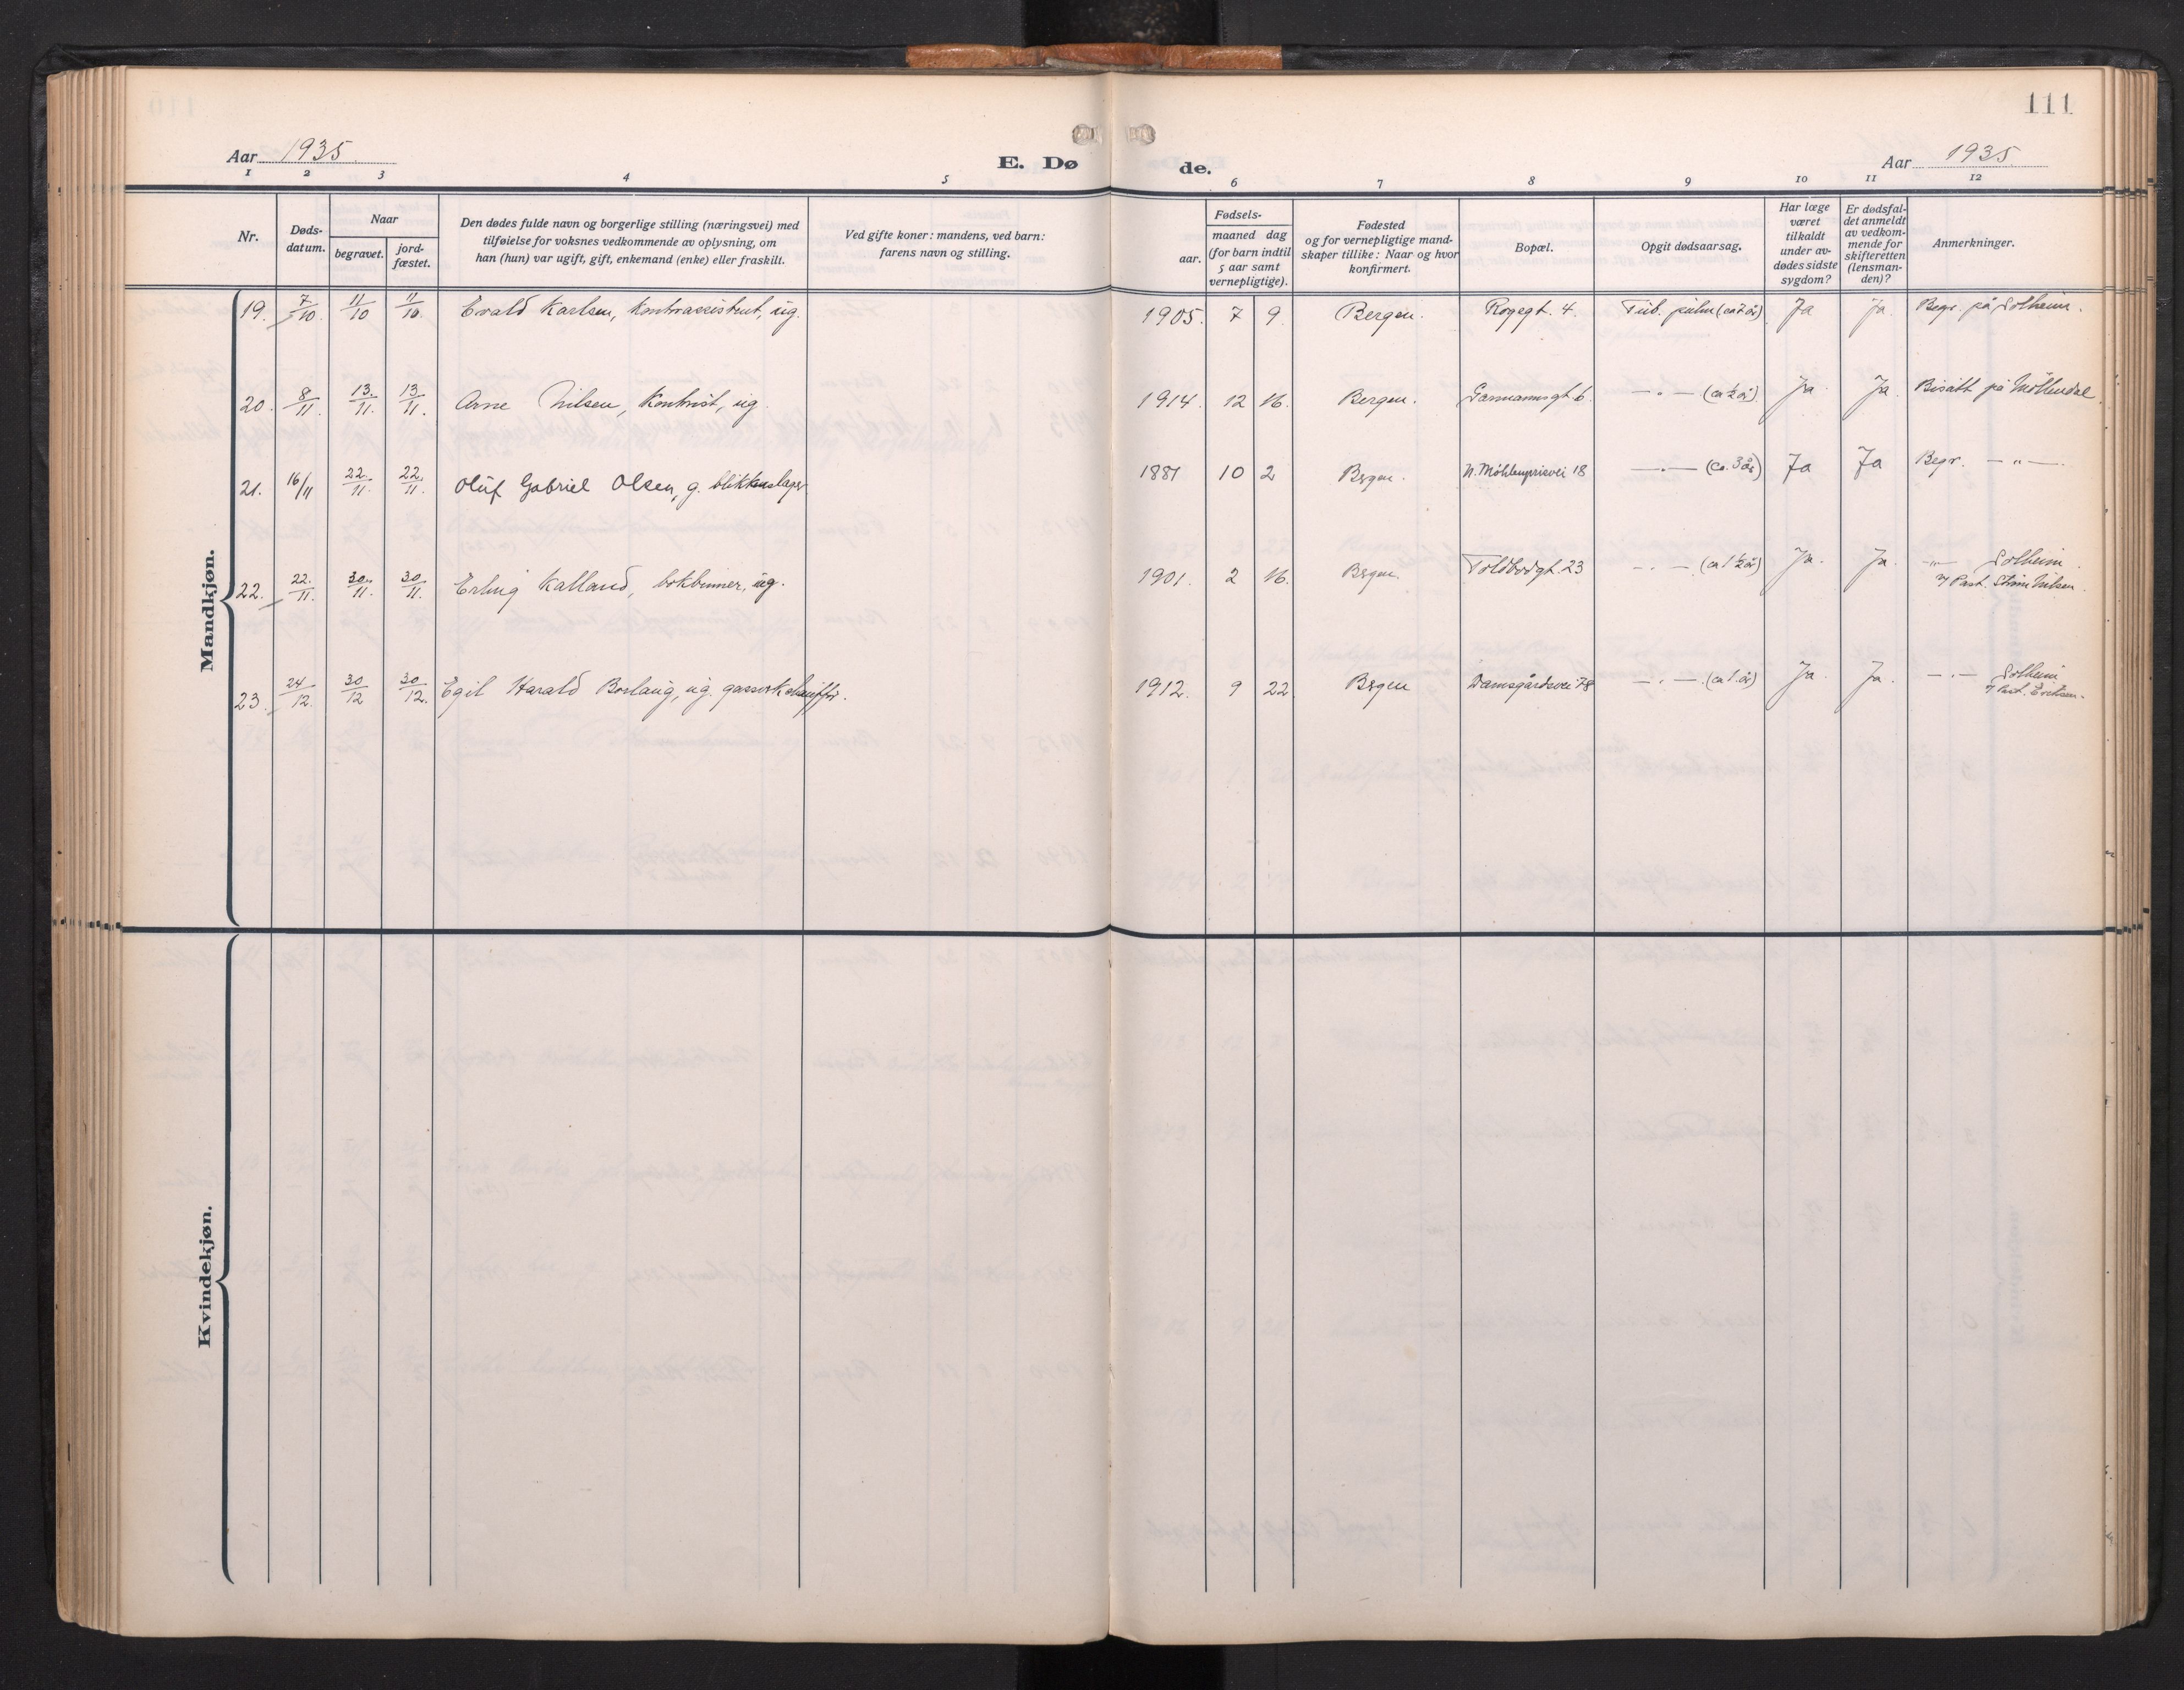 111
Aar 1935
E. Dø
de.
Aar 1935
1 2 3 4 5 6 7 8 9 10 11 12
Nr.
Døds-
datum.
Naar
begravet.
jord-
fæstet.
Den dødes fulde navn og borgerlige stilling (næringsvei) med
tilføielse for voksnes vedkommende av oplysning, om
han (hun) var ugift, gift, enkemand (enke) eller fraskilt.
Ved gifte koner: mandens, ved barn:
farens navn og stilling.
Fødsels-
aar.
maaned dag
(for barn indtil
5 aar samt
vernepligtige).
Fødested
og for vernepligtige mand-
skaper tillike: Naar og hvor
konfirmert.
Bopæl.
Opgit dødsaarsag.
Har læge
været
tilkaldt
under av-
dødes sidste
sygdom?
Er dødsfal-
det anmeldt
av vedkom-
mende for
skifteretten
(lensman-
den)?
Anmerkninger.
Mandkjøn.
19. 7/10. 11/10 11/10. Evald Karlsen, kontorassistent, ug. 1905. 7 9. Bergen. Rogegt. 4. Tub. pulm (ca 7 år) Ja Ja. Begr. på Solheim.
20. 8/11. 13./11. 13/11. Arne Nilsen, kontorist, ug. 1914. 12 16. Bergen. Garmannsgt 6. —.— (ca ½ år) Ja. Ja. Bisatt på Møllendal.
21. 16/11 22./11. 22./11. Oluf Gabriel Olsen, g. blikkenslager. 1881 10 2 Bergen. N. Møhlenprisvei 18 —.— (ca. 3 år) Ja Ja Begr. —"—.
22. 22./11. 30./11. 30/11. Erling Kalland, bokbinner, ug. 1901. 2 16. Bergen. Toldbodgt. 23 —.— (ca 1½ år) Ja. Ja. —"— Solheim.
v/ Past. Strøm Nilsen.
23. 24/12. 30/12 30/12. Egil Harald Borlaug, ug. gassverkchauffør. 1912. 9 22. Bergen Damsgårdsvei 78 —.— (ca 1. år) Ja. Ja. —.— Solheim
v/ Past. Eriksen.
Kvindekjøn.